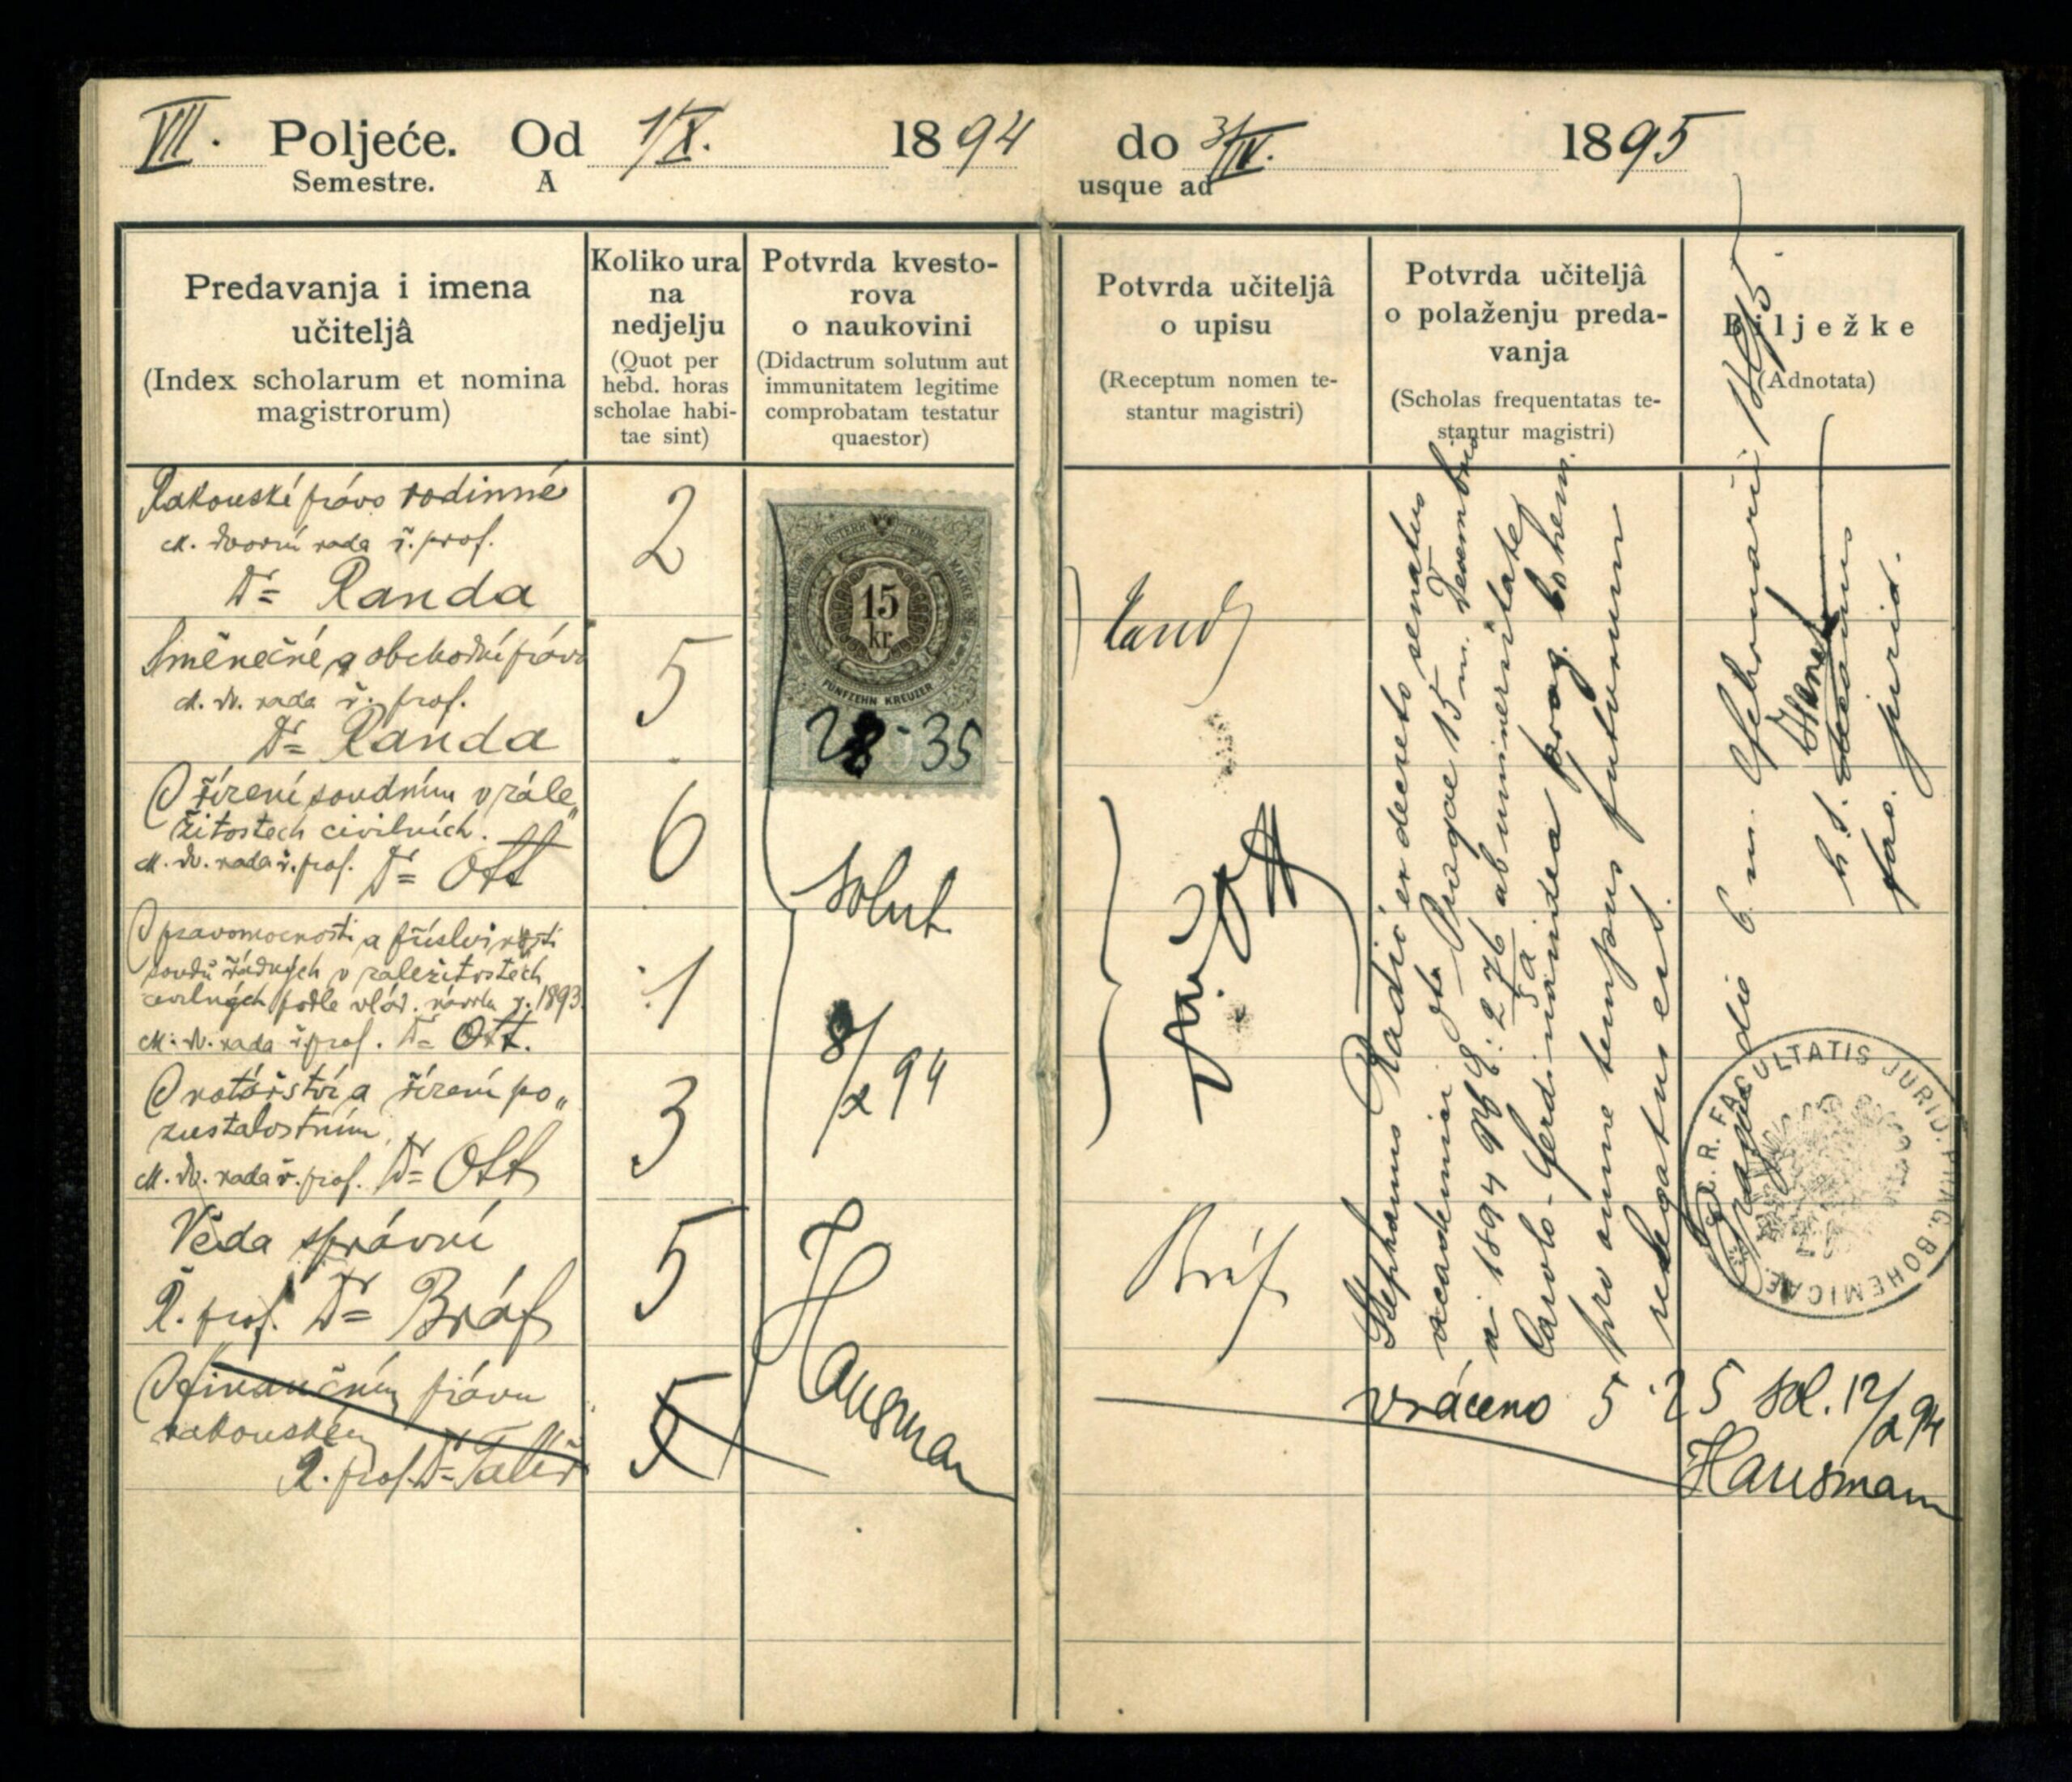 VII. Poljeće. Od 1/X. 1894
Semestre. A
do 31/IV. 1895
usque ad
Predavanja i imena
učiteljâ
(Index scholarum et nomina
magistrorum)
Koliko ura
na
nedjelju
(Quot per
hebd. horas
scholae habi-
tae sint)
Potvrda kvesto-
rova
o naukovini
(Didactrum solutum aut
immunitatem legitime
comprobatam testatur
quaestor)
Potvrda učiteljâ
o upisu
(Receptum nomen te-
stantur magistri)
Potvrda učiteljâ
o polaženju preda-
vanja
(Scholas frequentatas te-
stantur magistri)
Bilježke
(Adnotata)
Rakouské právo rodinné
dvorní rada ř. prof.
Dr Randa
2
Směnečné a obchodní právo
dv. rada ř. prof.
Dr Randa
5
O řízení soudním v zále„
žitostech civilních.
dv. rada ř. prof. Dr Ott
6
O pravomocnosti a příslušnosti
soudů řádných v záležitostech
civilných podle vlád. návrhu z r. 1893
dv. rada ř. prof. Dr Ott.
1
O notářství a řízení po„
zůstalostním,
dv. rada ř. prof. Dr Ott
3
Věda správní
Ř. prof. Dr Bráf
5
O finančním právu
rakouském
Ř. prof. Dr Talíř
5
ÖSTERR
15
kr.
FÜNFZEHN KREUZER
28·35
solvit
8/X 94
Hausman
Randa
Dr. Ott
Bráf
Stephanus Radić ex decreto senatus
academici dto Pragae 15 m. Decembris
a 1894 № 2276 ab universitate
Carolo-Ferdinandea prag. bohem.
pro omne tempus futurum
relegatus est.
Pragae die 6. m. Februarii 1895
Hanel
h. t. decanus
fac. jurid.
FACULTATIS JURID. PRAG. BOHEMICAE
vráceno 5·25 sol. 12/X 94
Hausmann